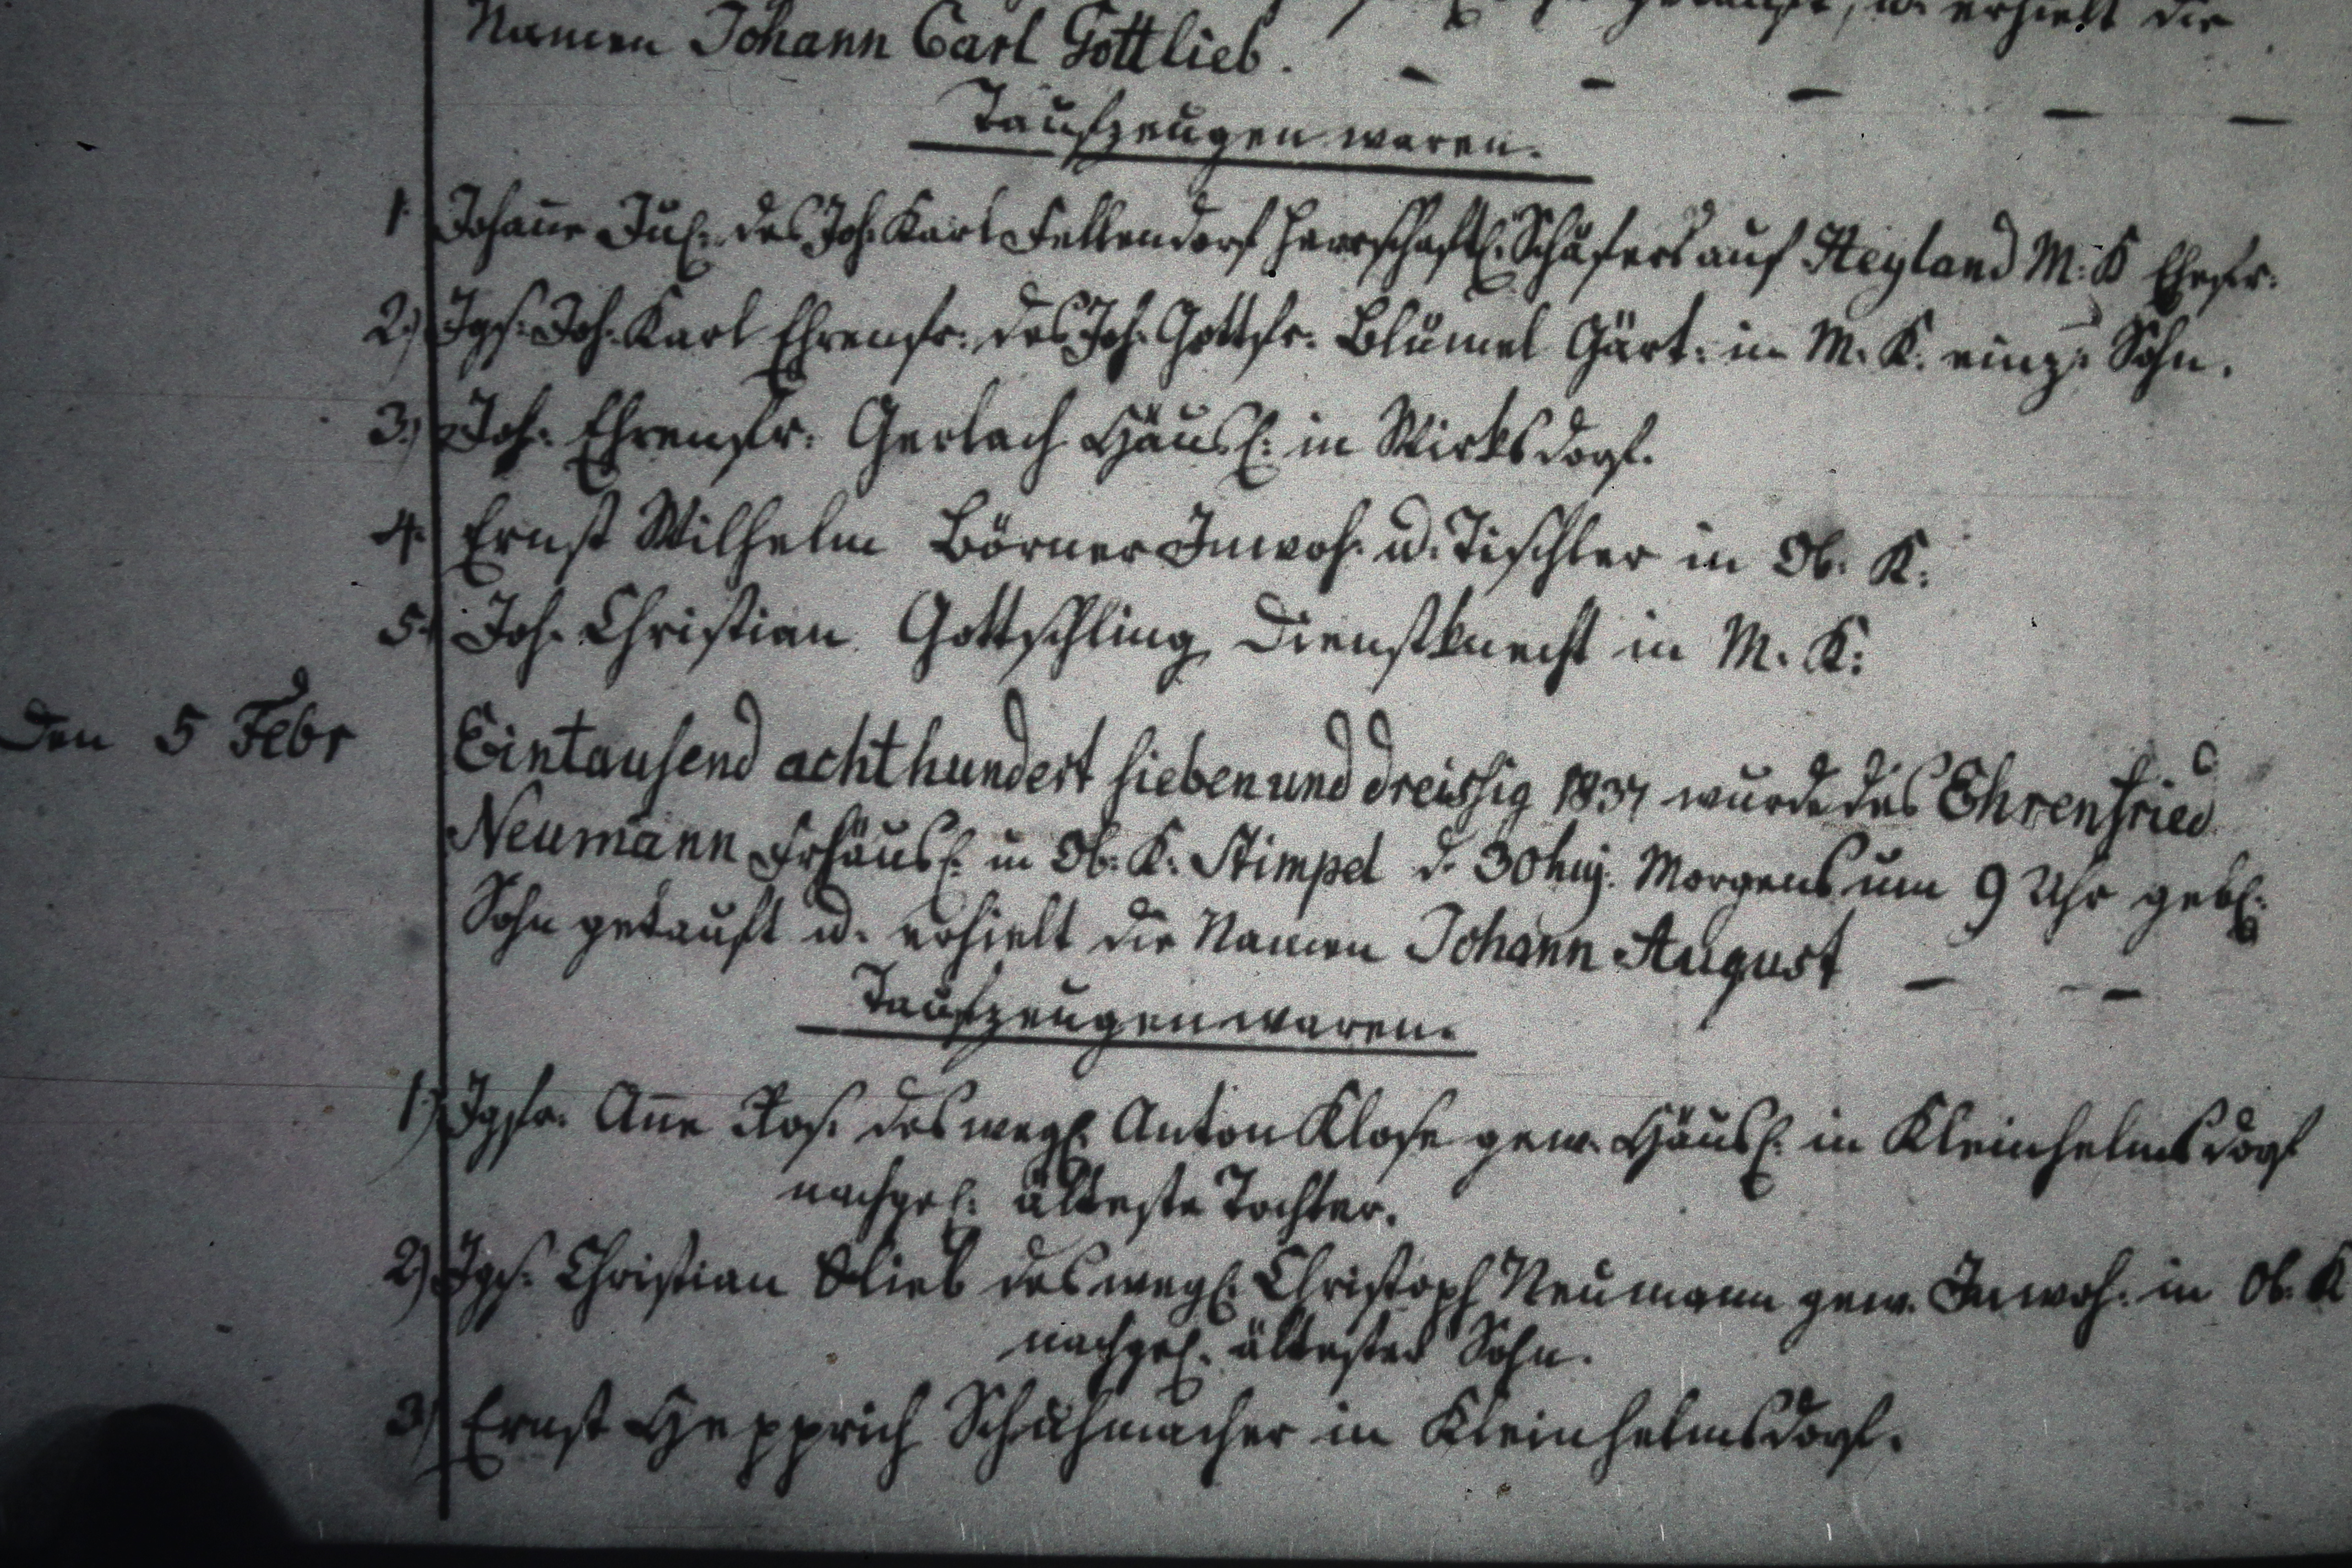 getauft, u. erhielt die
Namen Johann Carl Gottlieb. - - - - -
Taufzeugen waren.
1. Johanne Jul: des Joh. Karl Fellendorf herrschaftl: Schäfers auf Heyland M: K Ehefr:
2.) Jgs: Joh. Karl Ehrenfr: des Joh. Gottfr. Blümel Gärt: in M. K. einz: Sohn.
3.) Joh. Ehrenfr: Gerlach Häusl: in Wirksdorf.
4. Ernst Wilhelm Börner Inwoh. u. Tischler in Ob. K.
5. Joh. Christian Gottschling Dienstknecht in M. K:
Den 5 Febr Eintausend achthundert sieben und dreissig 1837 wurde des Ehrenfried
Neumann Frhäusl: in Ob. K. Stimpel d. 30 huj. Morgens um 9 Uhr geb:
Sohn getauft u. erhielt die Namen Johann August - -
Taufzeugen waren.
1.) Jgfr. Anne Ros. des wegl. Anton Klose gew. Häusl: in Kleinhelmsdorf
nachgel: älteste Tochter.
2) Jgs: Christian Glieb des wegl: Christoph Neumann gew. Inwoh. in Ob. K
nachgel. ältester Sohn.
3) Ernst Hepprich Schuhmacher in Kleinhelmsdorf.